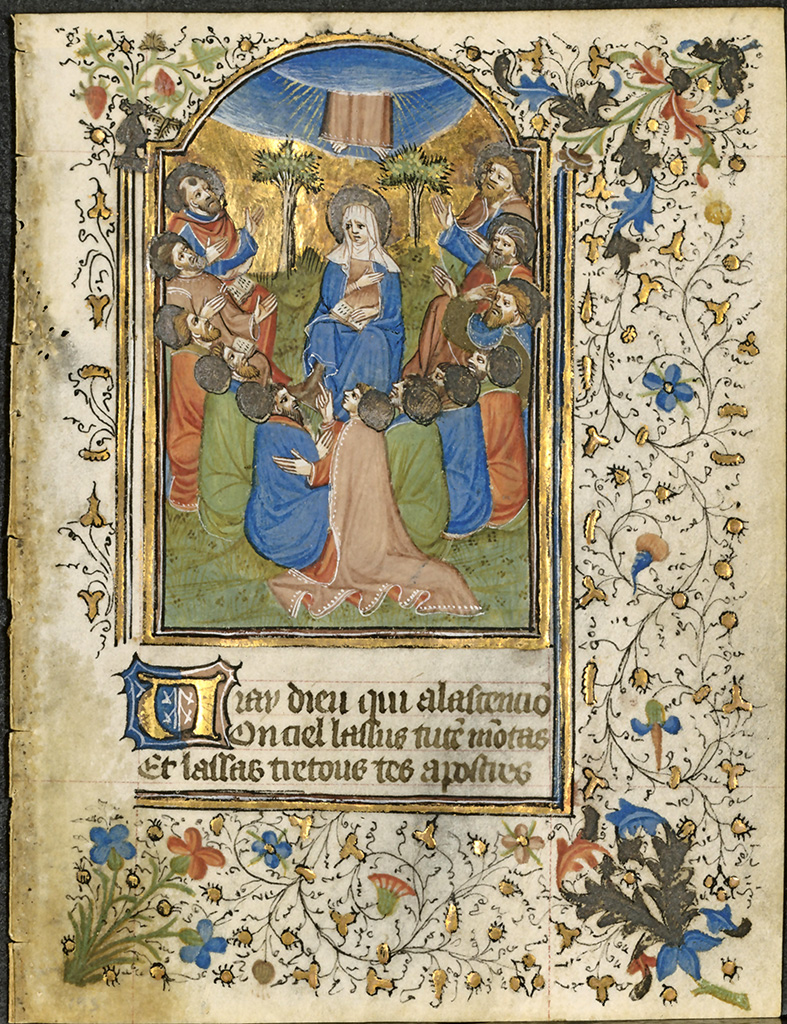 Vray dieu qui a lascenciō
On ciel lassus tutē mōtas
Et lassas tretous tes apostres